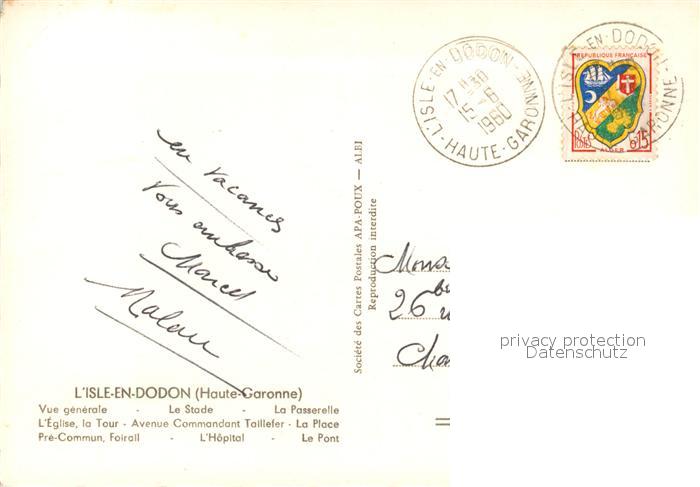 L'ISLE-EN-DODON
17H30
15-6
1960
HAUTE-GARONNE
L'ISLE-EN-DODON
HAUTE-GARONNE
REPUBLIQUE FRANÇAISE
POSTES 0,15
ALGER
en vacances
Vous embrasse
Marcel
Société des Cartes Postales APA-POUX — ALBI
Reproduction interdite
26 bis
privacy protection
Datenschutz
L'ISLE-EN-DODON (Haute-Garonne)
Vue générale - Le Stade - La Passerelle
L'Église, la Tour - Avenue Commandant Taillefer - La Place
Pré-Commun, Foirail - L'Hôpital - Le Pont